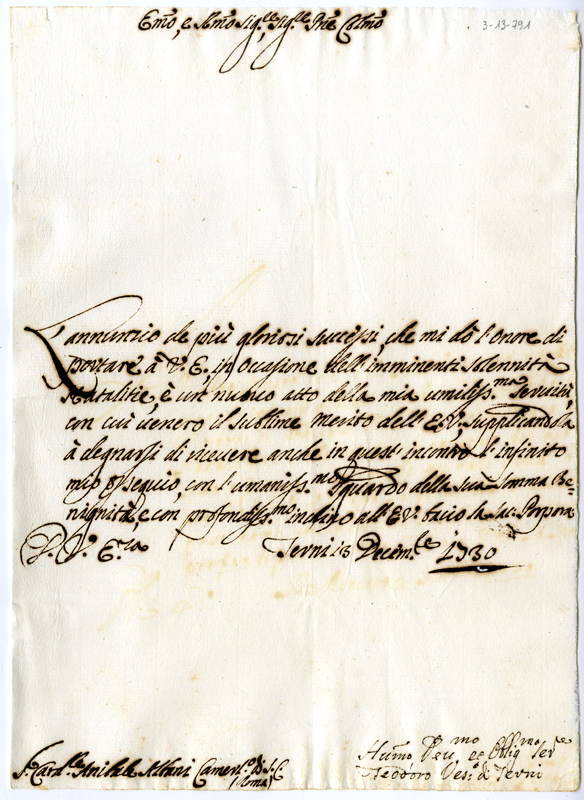 Emo, e Rmo Sig.re Sig.re Pne Colmo
3-13-791
L'annunzio de più gloriosi successi, che mi dò l'onore di
portare à V. E. in occasione dell'imminenti solennità
Natalitie, è un nuovo atto della mia umiliss.ma servitù,
con cui venero il sublime merito dell'E. V., supplicandola
à degnarsi di ricevere anche in quest'incontro l'infinito
mio ossequio, con l'umaniss.mo sguardo della sua somma Be=
nignità, e con profondiss.mo inchino all'E. V. bacio la sac. Porpora
D. V. E.za Terni 13 Decem.re 1730
S.r Card.le Anibale Albani Camerl.o di S. C.
(Roma)
Humo Dev.mo ed Obblig.mo Ser.e
Teodoro Ves.o di Terni